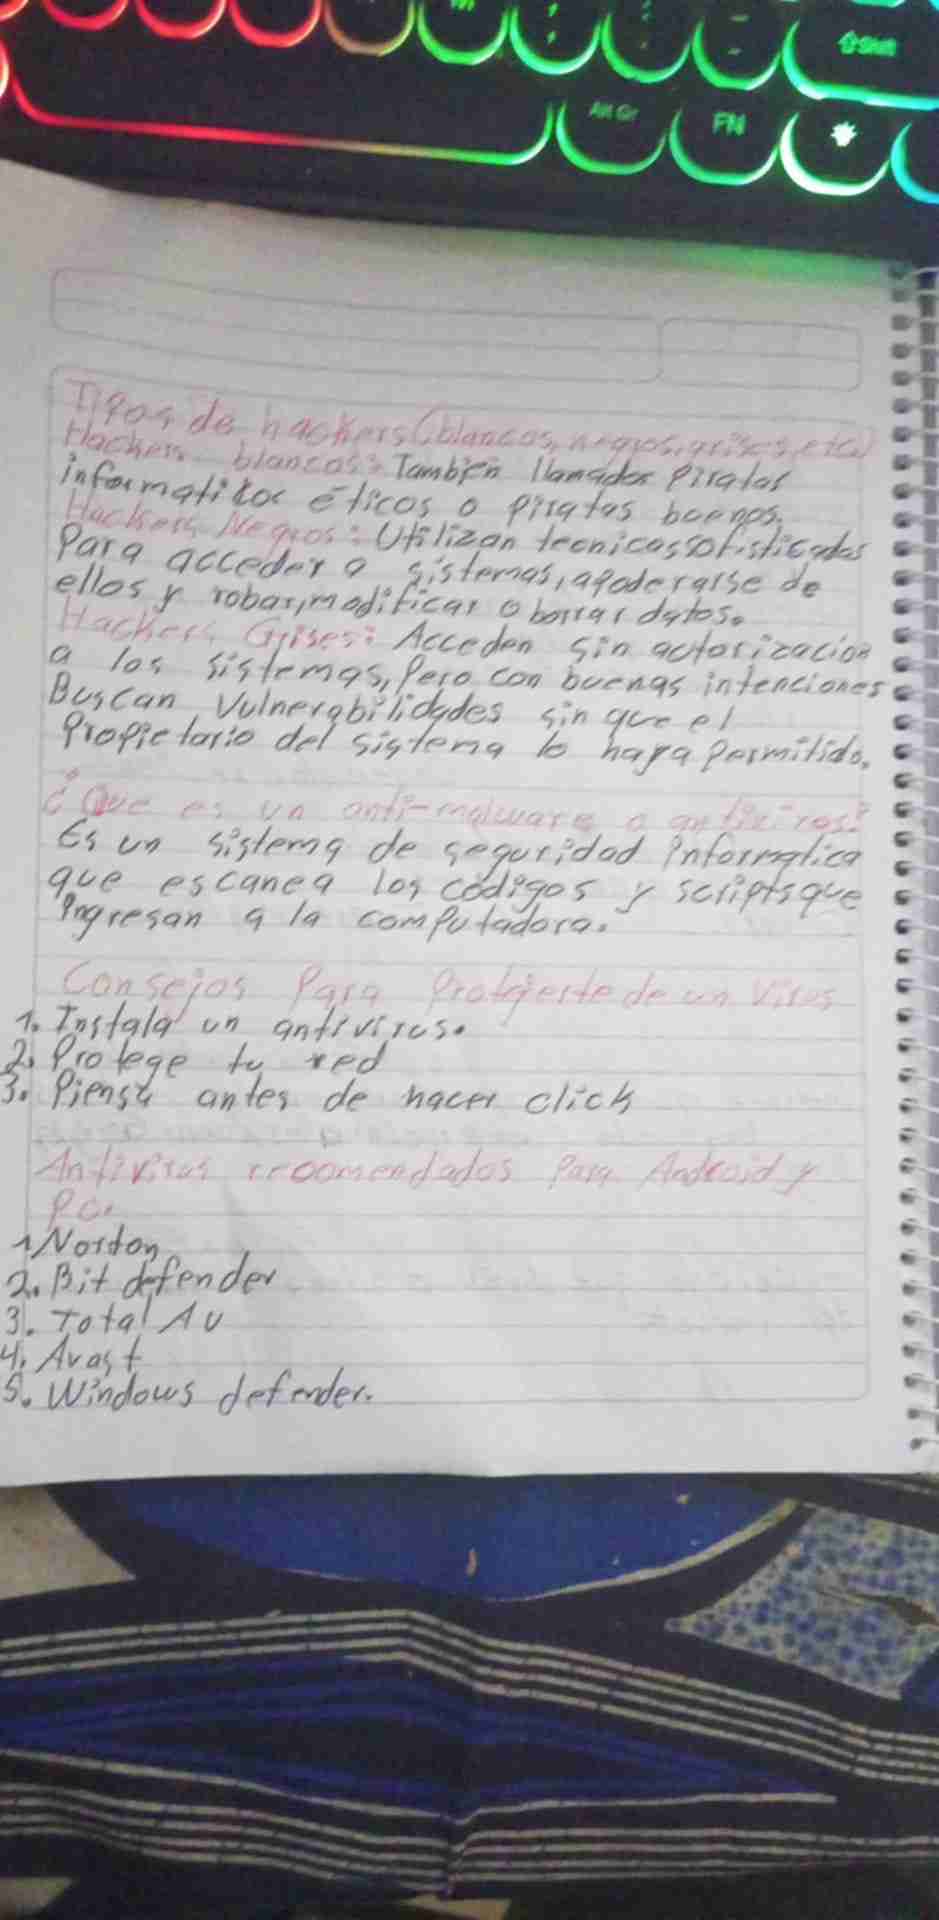 Shift
Alt Gr
FN
Tipos de hackers (blancos, negros, grises, etc)
Hackers blancos: Tambien llamados Piratas
informaticos éticos o piratas buenos.
Hackers Negros: Utilizan tecnicas sofisticadas
Para acceder a sistemas, apoderarse de
ellos y robar, modificar o borrar datos.
Hackers Grises: Acceden sin autorizacion
a los sistemas, Pero con buenas intenciones
Buscan Vulnerabilidades sin que el
Propietario del sistema lo haya Permitido.
¿Que es un anti-malware o antivirus?
Es un sistema de seguridad informatica
que escanea los códigos y scripts que
ingresan a la computadora.
Consejos Para Protejerte de un Virus
1. Instala un antivirus.
2. Protege tu red
3. Piensa antes de hacer click
Antivirus recomendados Para Android y
PC.
1 Norton
2. Bit defender
3. Total AV
4. Avast
5. Windows defender.